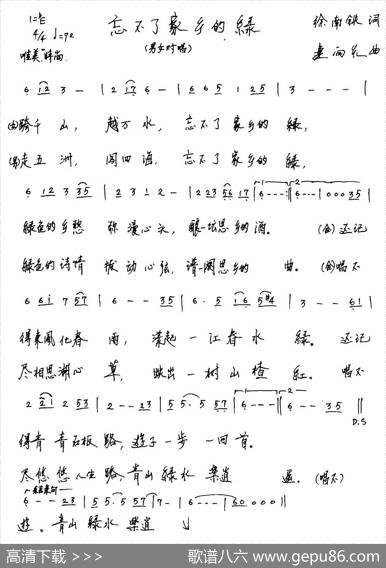 1=♭E 忘不了家乡的绿 徐南铁 词
4/4 ♩=72 (男女对唱) 曲
唯美 时尚
6 12 3 - | 2 17 6 - | 6 6 5 1 25 | 3 - - - |
(男)跨千山, 越万水, 忘不了家乡的绿,
(女)走五洲, 闯四海, 忘不了家乡的绿,
6 12 3 35 | 2 3 1 2 - | 2 23 56 17 | 6 - - - :| 6 - - - | 0 0 0 35 |
绿色的乡愁 弥漫心头, 酿一坛思乡的酒。 (合)还记
绿色的诗情 拨动心弦, 谱一阕思乡的 曲。 (合)唱不
6 6i 7 57 | 6 - - 35 | 6 · 5 16 54 | 3 - - 61 |
得东风化春 雨, 染起一江春水 绿。 还记
尽相思湖心 草, 映出一树山楂 红。 唱不
2 21 2 53 | 2 - - 23 | 55 · 5 57 | 6 - - - :| 6 - - 35 |
D.S
得青 青石板 路, 游子一步一回首。
尽悠 悠人生 路, 青山绿水 乐逍 遥。 (唱不)
6 - - 23 | 55 · 5 57 | 7 - | 6 - - - | 6 0 0 0 ||
遥。青山 绿水 乐逍
高清下载 >>> 歌谱八六 www.gepu86.com